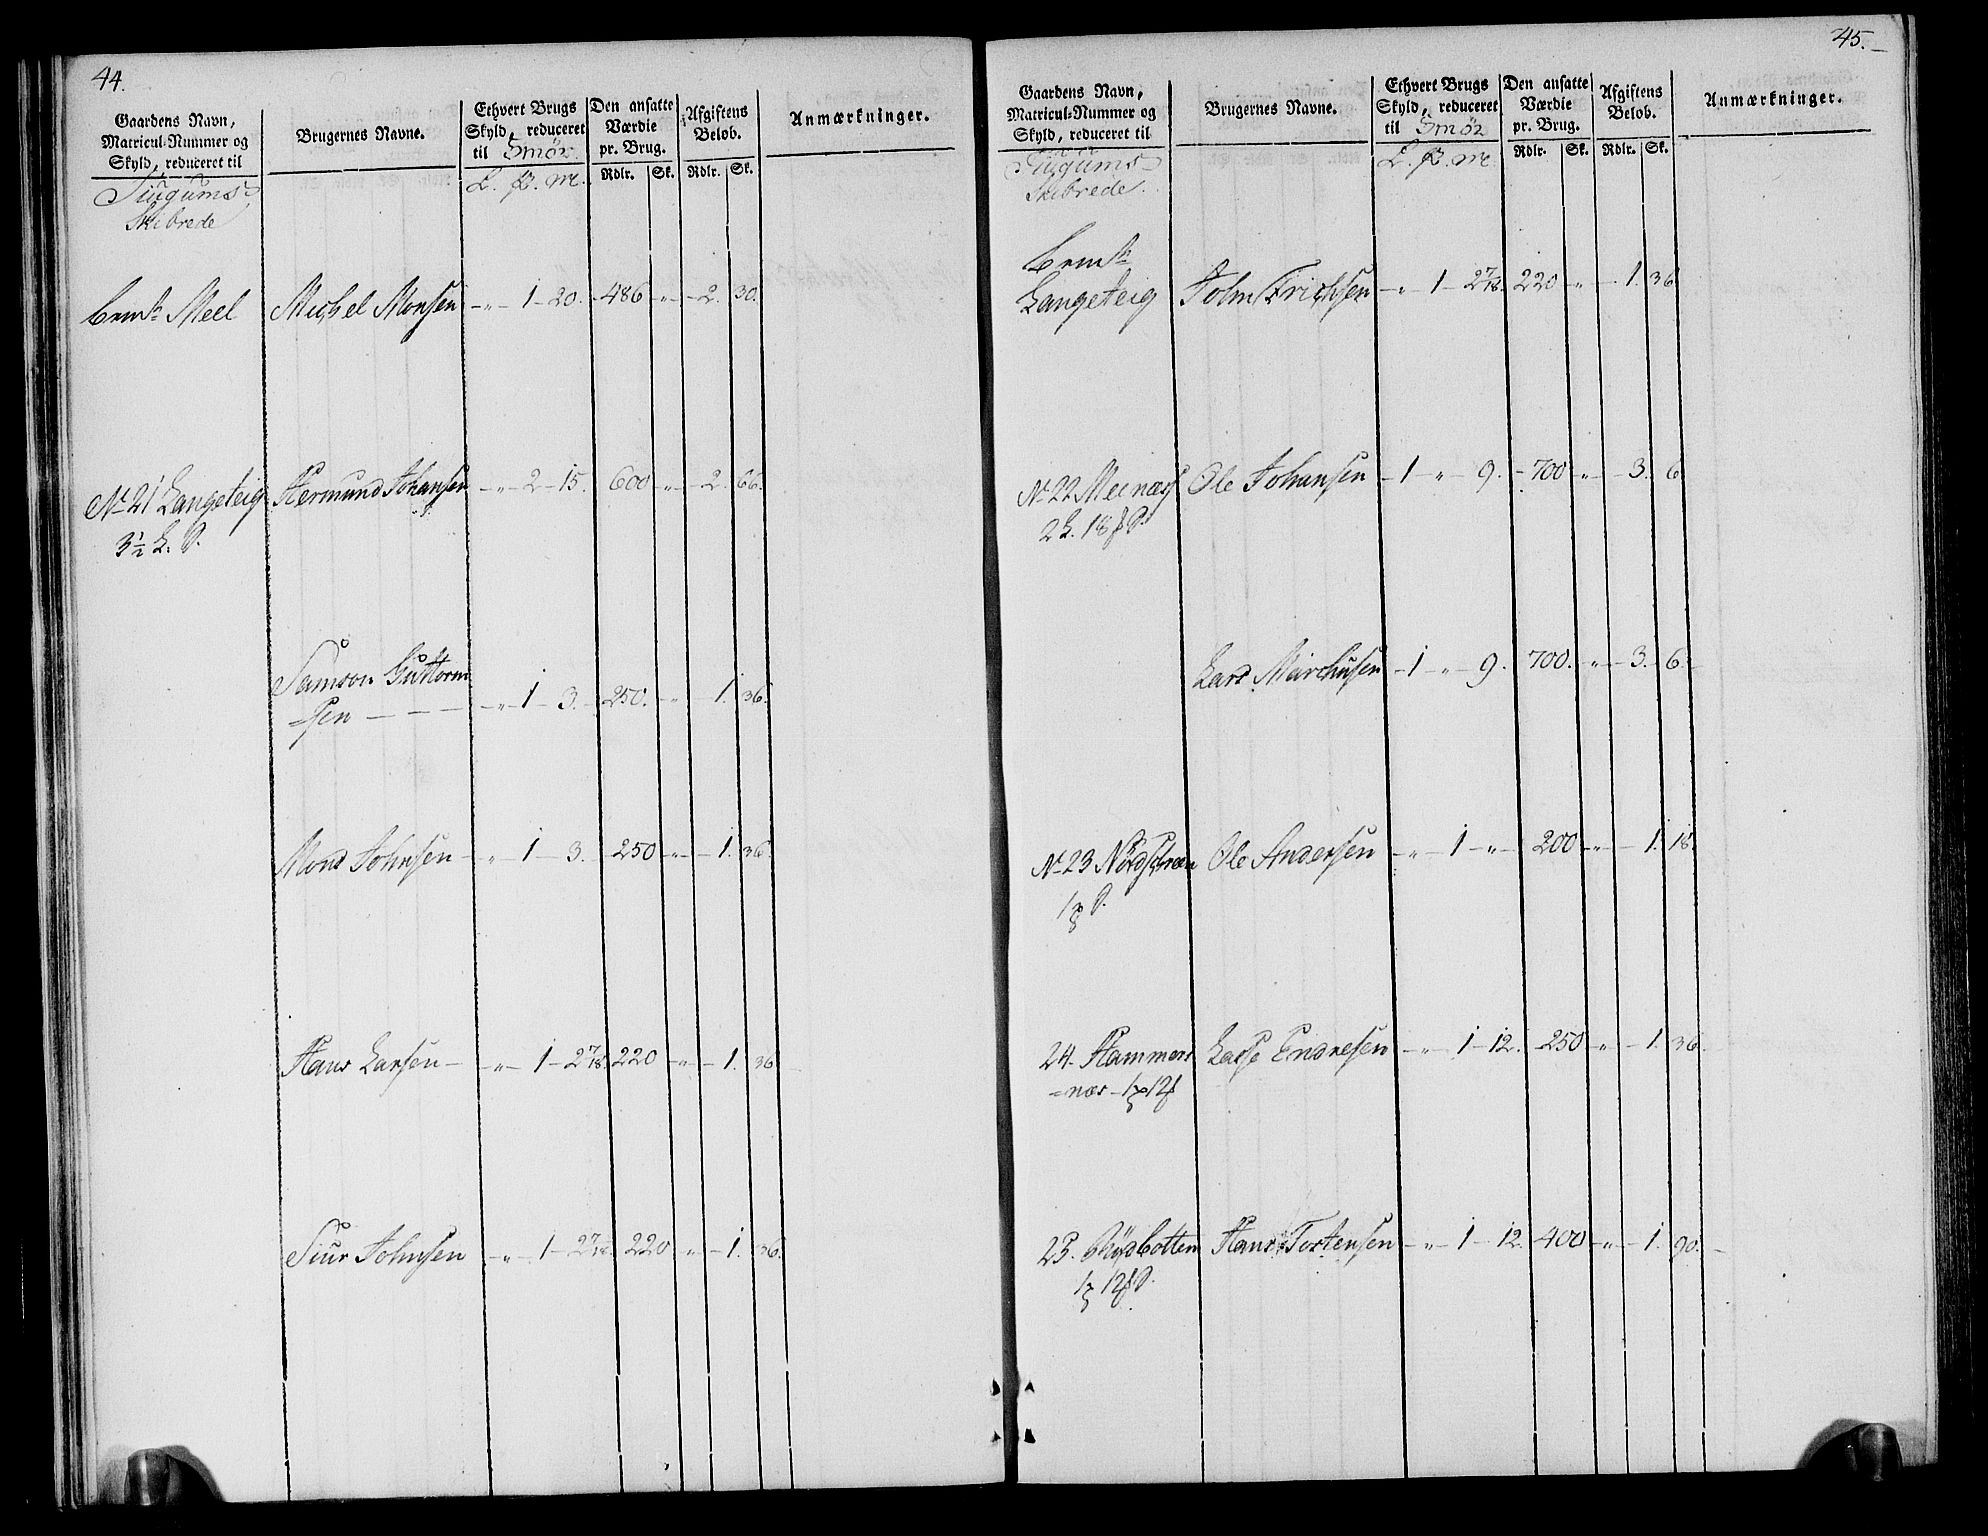 44.
Gaardens Navn,
Matricul-Nummer og
Skyld, reduceret til
Brugernes Navne.
Ethvert Brugs
Skyld, reduceret
til Smör.
Den ansatte
Værdie
pr. Brug.
Rdlr. Sk.
Afgiftens
Beløb.
Rdlr. Sk.
Anmærkninger.
Skibrede
L. ß. M.
Meel Michel Monsen - „ - 1 - 20. - 486 „ - 2. 30.
No 21 Langeteig Hermund Johansen - „ - 2 - 15. 600 „ - 2. 66.
3½ L. S.
Samson Guttorm
=sen - - - - „ - 1 - 3. - 250. „ 1. 36.
Mons Johnsen - „ - 1 - 3. - 250 - „ - 1. 36
Hans Larsen - - „ - 1 - 2 7/18. 220 - „ - 1. 36
Siur Johnsen - „ - 1 - 2 7/18 220 „ - 1. 36.
45.
Gaardens Navn,
Matricul-Nummer og
Skyld, reduceret til
Brugernes Navne.
Ethvert Brugs
Skyld, reduceret
til Smör
Den ansatte
Værdie
pr. Brug.
Rdlr. Sk.
Afgiftens
Beløb.
Rdlr. Sk.
Anmærkninger.
Skibrede
L. ß. M.
Langeteig John Erichsen - „ 1 - 2 7/18. 220 - „ - 1. 36
No 22 Meenæs Ole Johansen - 1 „ - 9. - 700 „ - 3. 6
2 L. 18
Lars Marchusen - 1 „ - 9. 700. „ - 3. 6.
No 23 Ole Andersen - „ - 1 - „ - 200 - „ - 1. 18.
24. Hammers Lasse Endresen - „ - 1 - 12. - 250 - „ - 1. 36.
=næs - 1 12
25. Hans Tostensen - „ - 1 - 12. 400 - „ - 1. 90. -
1 12